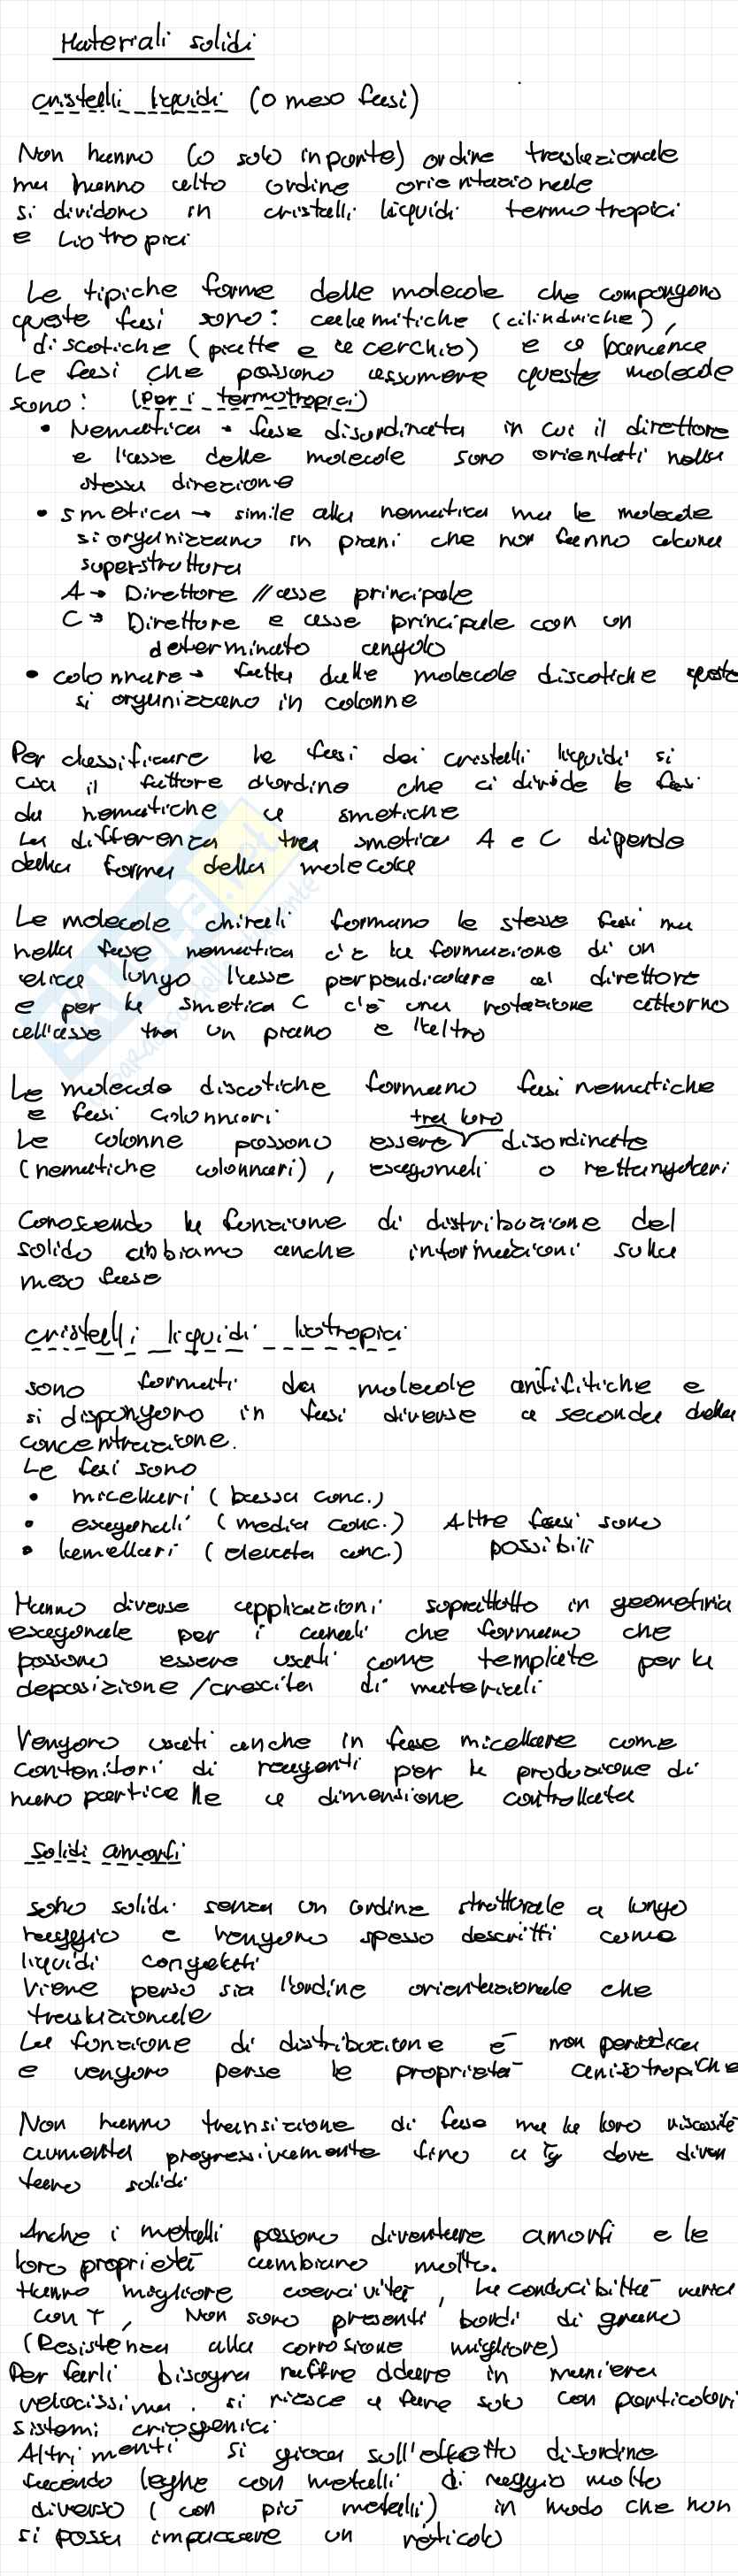 Materiali solidi
cristalli liquidi (o meso fasi)
Non hanno (o solo in parte) ordine traslazionale
ma hanno alto ordine orientazionale
si dividono in cristalli liquidi termotropici
e Liotropici
Le tipiche forme delle molecole che compongono
queste fasi sono: calamitiche (cilindriche),
discotiche (piatte e a cerchio) e a banana
Le fasi che possono assumere queste molecole
sono: (per i termotropici)
• Nematica → fase disordinata in cui il direttore
e l'asse delle molecole sono orientati nella
stessa direzione
• smetica → simile alla nematica ma le molecole
si organizzano in piani che non fanno alcuna
superstruttura
A → Direttore // asse principale
C → Direttore e asse principale con un
determinato angolo
• colonnare → fatta dalle molecole discotiche queste
si organizzano in colonne
Per classificare le fasi dei cristalli liquidi si
usa il fattore d'ordine che ci divide le fasi
da nematiche a smetiche
La differenza tra smetica A e C dipende
dalla forma della molecola
Le molecole chirali formano le stesse fasi ma
nella fase nematica c'è la formazione di un
elica lungo l'asse perpendicolare al direttore
e per la smetica C c'è una rotazione attorno
all'asse tra un piano e l'altro
Le molecole discotiche formano fasi nematiche
e fasi colonnari
tra loro
Le colonne possono essere disordinate
(nematiche colonnari), esagonali o rettangolari
Conoscendo la funzione di distribuzione del
solido abbiamo anche informazioni sulla
meso fase
cristalli liquidi liotropici
sono formati da molecole anfifitiche e
si dispongono in fasi diverse a seconda della
concentrazione.
Le fasi sono
• micellari (bassa conc.)
• esagonali (media conc.) Altre fasi sono
• lamellari (elevata conc.) possibili
Hanno diverse applicazioni soprattutto in geometria
esagonale per i canali che formano che
possono essere usati come template per la
deposizione/crescita di materiali
Vengono usati anche in fase micellare come
contenitori di reagenti per la produzione di
nano particelle a dimensione controllata
Solidi amorfi
sono solidi senza un ordine strutturale a lungo
raggio e vengono spesso descritti come
liquidi congelati
Viene perso sia l'ordine orientazionale che
traslazionale
La funzione di distribuzione è non periodica
e vengono perse le proprietà anisotropiche
Non hanno transizione di fase ma la loro viscosità
aumenta progressivamente fino a Tg dove diven
tano solidi
Anche i metalli possono diventare amorfi e le
loro proprietà cambiano molto.
Hanno migliore coercività, la conducibilità varia
con T, Non sono presenti bordi di grano
(Resistenza alla corrosione migliore)
Per farli bisogna raffreddare in maniera
velocissima. si riesce a fare solo con particolari
sistemi criogenici
Altrimenti si gioca sull'effetto disordine
facendo leghe con metalli di raggio molto
diverso (con più metalli) in modo che non
si possa impaccare un reticolo